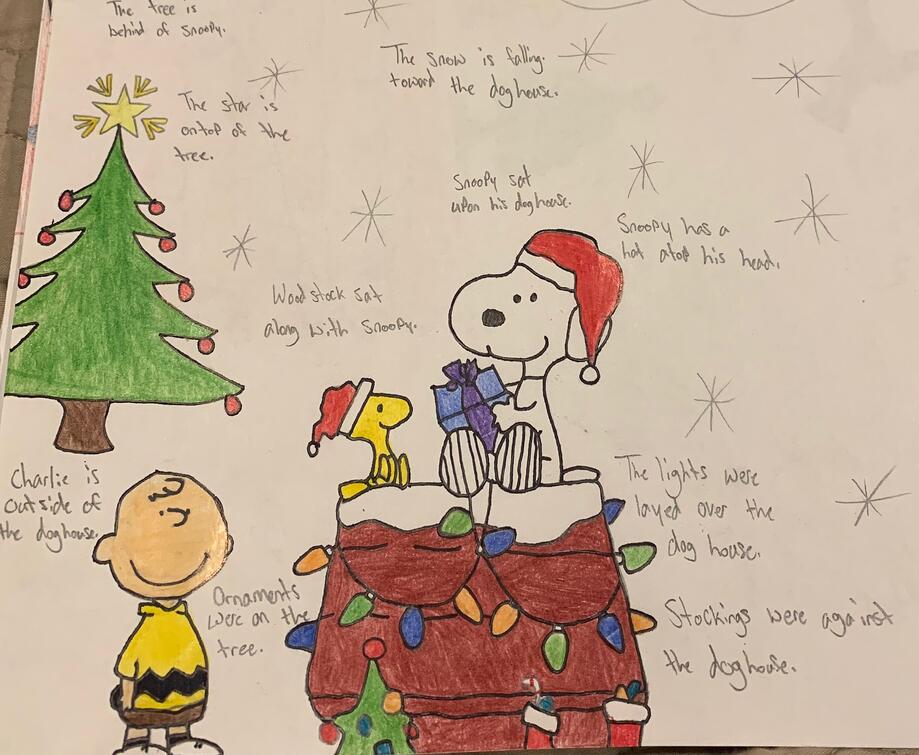 The tree is
behind of Snoopy.
The snow is falling.
toward the doghouse.
The star is
ontop of the
tree.
Snoopy sat
upon his doghouse.
Snoopy has a
hat atop his head.
Woodstock sat
along with Snoopy.
Charlie is
outside of
the doghouse.
The lights were
layed over the
dog house.
Ornaments
were on the
tree.
Stockings were against
the doghouse.